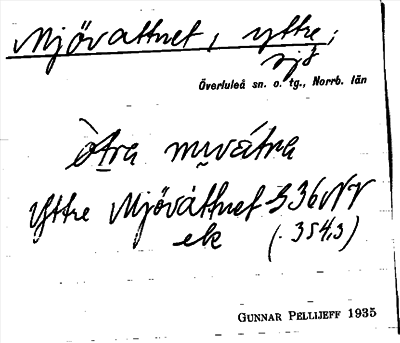 Mjövattnet, yttre;
sjö
Överluleå sn. o. tg., Norrb. län
Yttre Mjövattnet 36 NV
ek (. 354,3)
GUNNAR PELLIJEFF 1935